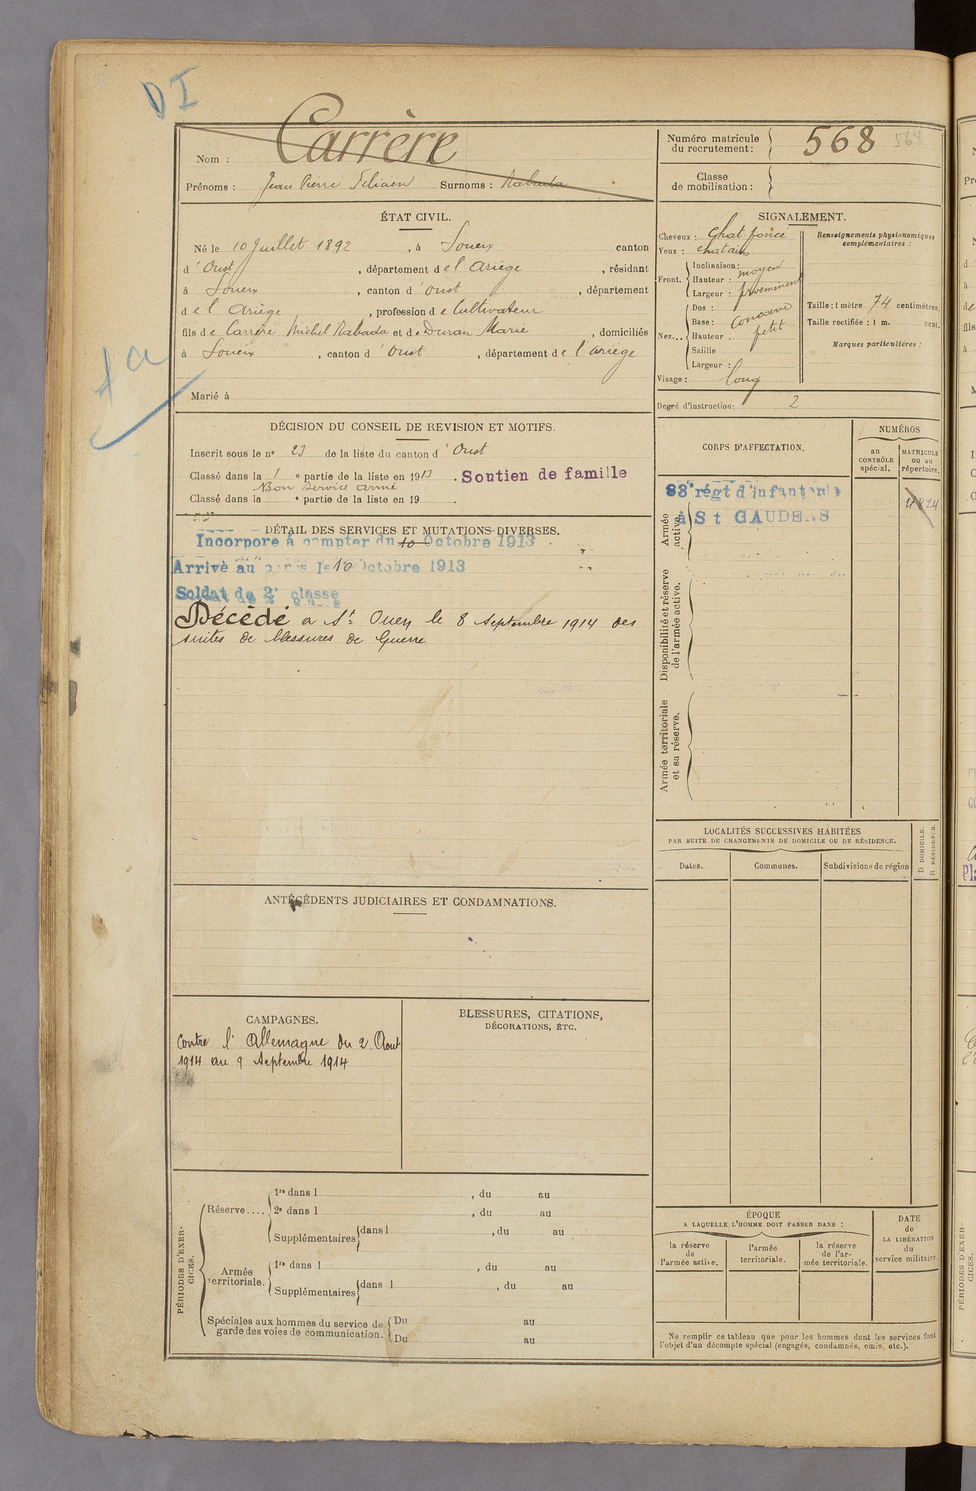 DI
Nom : Carrère
Prénoms : Jean Pierre Surnoms : Rabada
Numéro matricule du recrutement : 568 568
Classe de mobilisation :
ÉTAT CIVIL.
Né le 10 Juillet 1892, à Soueix canton
d'Oust, département de l'Ariège, résidant
à Soueix, canton d'Oust, département
de l'Ariège, profession de Cultivateur
fils de Carrère Michel Rabada et de Duran Marie, domiciliés
à Soueix, canton d'Oust, département de l'ariège
Marié à
SIGNALEMENT.
Cheveux : Chat foncé
Yeux : chatain
Front. Inclinaison : moyen
Hauteur :
Largeur : proeminent
Nez... Dos :
Base : concave
Hauteur : petit
Saillie
Largeur :
Visage : long
Renseignements physionomiques complémentaires :
Taille : 1 mètre 74 centimètres.
Taille rectifiée : 1 m. cent.
Marques particulières :
Degré d'instruction : 2
DÉCISION DU CONSEIL DE REVISION ET MOTIFS.
Inscrit sous le n° 23 de la liste du canton d'Oust
Classé dans la 1 e partie de la liste en 1913. Soutien de famille
Bon service armé
Classé dans la e partie de la liste en 19
DÉTAIL DES SERVICES ET MUTATIONS DIVERSES.
Incorporé à compter du 10 Octobre 1913
Arrivé au corps le 10 Octobre 1913
Soldat de 2e classe
Décédé à St Ouen le 8 Septembre 1914 des
suites de blessures de Guerre
CORPS D'AFFECTATION.
NUMÉROS
au CONTRÔLE spécial.
MATRICULE ou au répertoire.
Armée active.
83e régt d'infanterie
à St GAUDENS
Disponibilité et réserve de l'armée active.
Armée territoriale et sa réserve.
LOCALITÉS SUCCESSIVES HABITÉES
PAR SUITE DE CHANGEMENTS DE DOMICILE OU DE RÉSIDENCE.
Dates. Communes. Subdivisions de région
D DOMICILE.
R RÉSIDENCE.
ANTÉCÉDENTS JUDICIAIRES ET CONDAMNATIONS.
CAMPAGNES.
Contre l'Allemagne du 2 Aout
1914 au 9 Septembre 1914
BLESSURES, CITATIONS,
DÉCORATIONS, ETC.
PÉRIODES D'EXERCICES.
Réserve.... 1re dans l , du au
2e dans l , du au
Supplémentaires dans l , du au
Armée territoriale. 1re dans l , du au
Supplémentaires dans l , du au
Spéciales aux hommes du service de garde des voies de communication.
Du au
Du au
ÉPOQUE
A LAQUELLE L'HOMME DOIT PASSER DANS :
la réserve de l'armée active.
l'armée territoriale.
la réserve de l'armée territoriale.
DATE de LA LIBÉRATION du service militaire.
Ne remplir ce tableau que pour les hommes dont les services font
l'objet d'un décompte spécial (engagés, condamnés, omis, etc.).